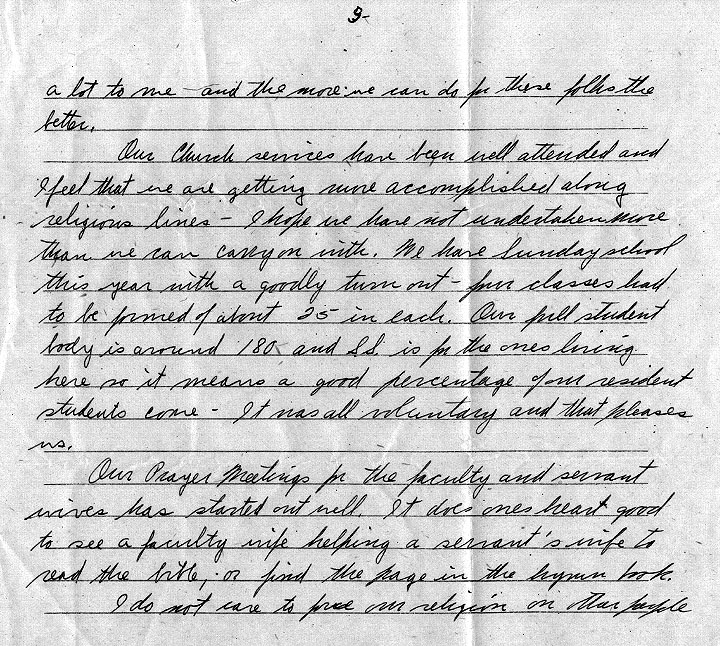 9-
a lot to me - and the more we can do for these folks the
better.
Our Church services have been well attended and
I feel that we are getting more accomplished along
religious lines - I hope we have not undertaken more
than we can carry on with. We have Sunday school
this year with a goodly turn out - four classes had
to be formed of about 25 in each. Our full student
body is around 180 and S.S. is for the ones living
here so it means a good percentage of our resident
students come - It was all voluntary and that pleases
us.
Our Prayer Meetings for the faculty and servant
wives has started out well. It does ones heart good
to see a faculty wife helping a servant's wife to
read the bible, or find the page in the hymn book.
I do not care to force our religion on other people